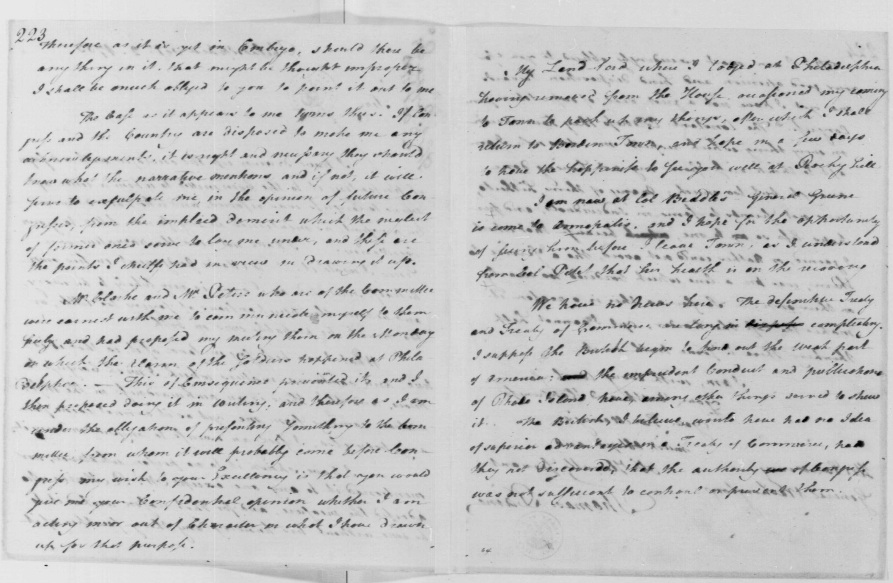 223
therefore as it is yet in Embryo, should there be
any thing in it, that might be thought improper
I shall be much obliged to you to point it out to me
The Case as it appears to me
and the Country are disposed to make me any
it is right and necessary they should
know what the narrative mentions and if not, it will
serve to exculpate me, in the opinion of future
from the implied demerit which the neglect
of former ones serve to lay me under, and these are
the points I chiefly had in view in drawing it up.
Mr. Clarke and Mr. Peters who are of the Committee
were earnest with me to communicate myself to them
and had proposed my meeting them on the Monday
on which the of the Soldiers happened at Phila
delphia. — This of Consequence prevented it, and I
then proposed doing it in writing, and therefore as I am
under the obligation of presenting Something to the Com
mittee from whom it will probably come before Con
gress my wish to your Excellency is that you would
give me your Confidential opinion whether I am
acting in or out of Character in what I have drawn
up for that purpose.
My Land Lord where I lodged at Philadelphia
having removed from the House occasioned my coming
to Town to pack up my things, after which I shall
return to Borden Town, and hope in a few days
to have the happiness to see you well at Rocky Hill
I am now at Col Biddles. General Greene
is come to Annapolis, and I hope for the opportunity
of seeing him before I leave Town, as I understand
from Col Pettit that his health is on the
We have no News here. The definitive Treaty
and Treaty of Commerce in
I suppose the British begin to find out the weak part
of America; the imprudent Conduct and publications
of Rhode Island have among other things served to shew
it. The British, I believe, would have had no Idea
of superior advantages in a Treaty of Commerce, had
they not discovered, that the authority of Congress
was not sufficient to controul or prevent them.